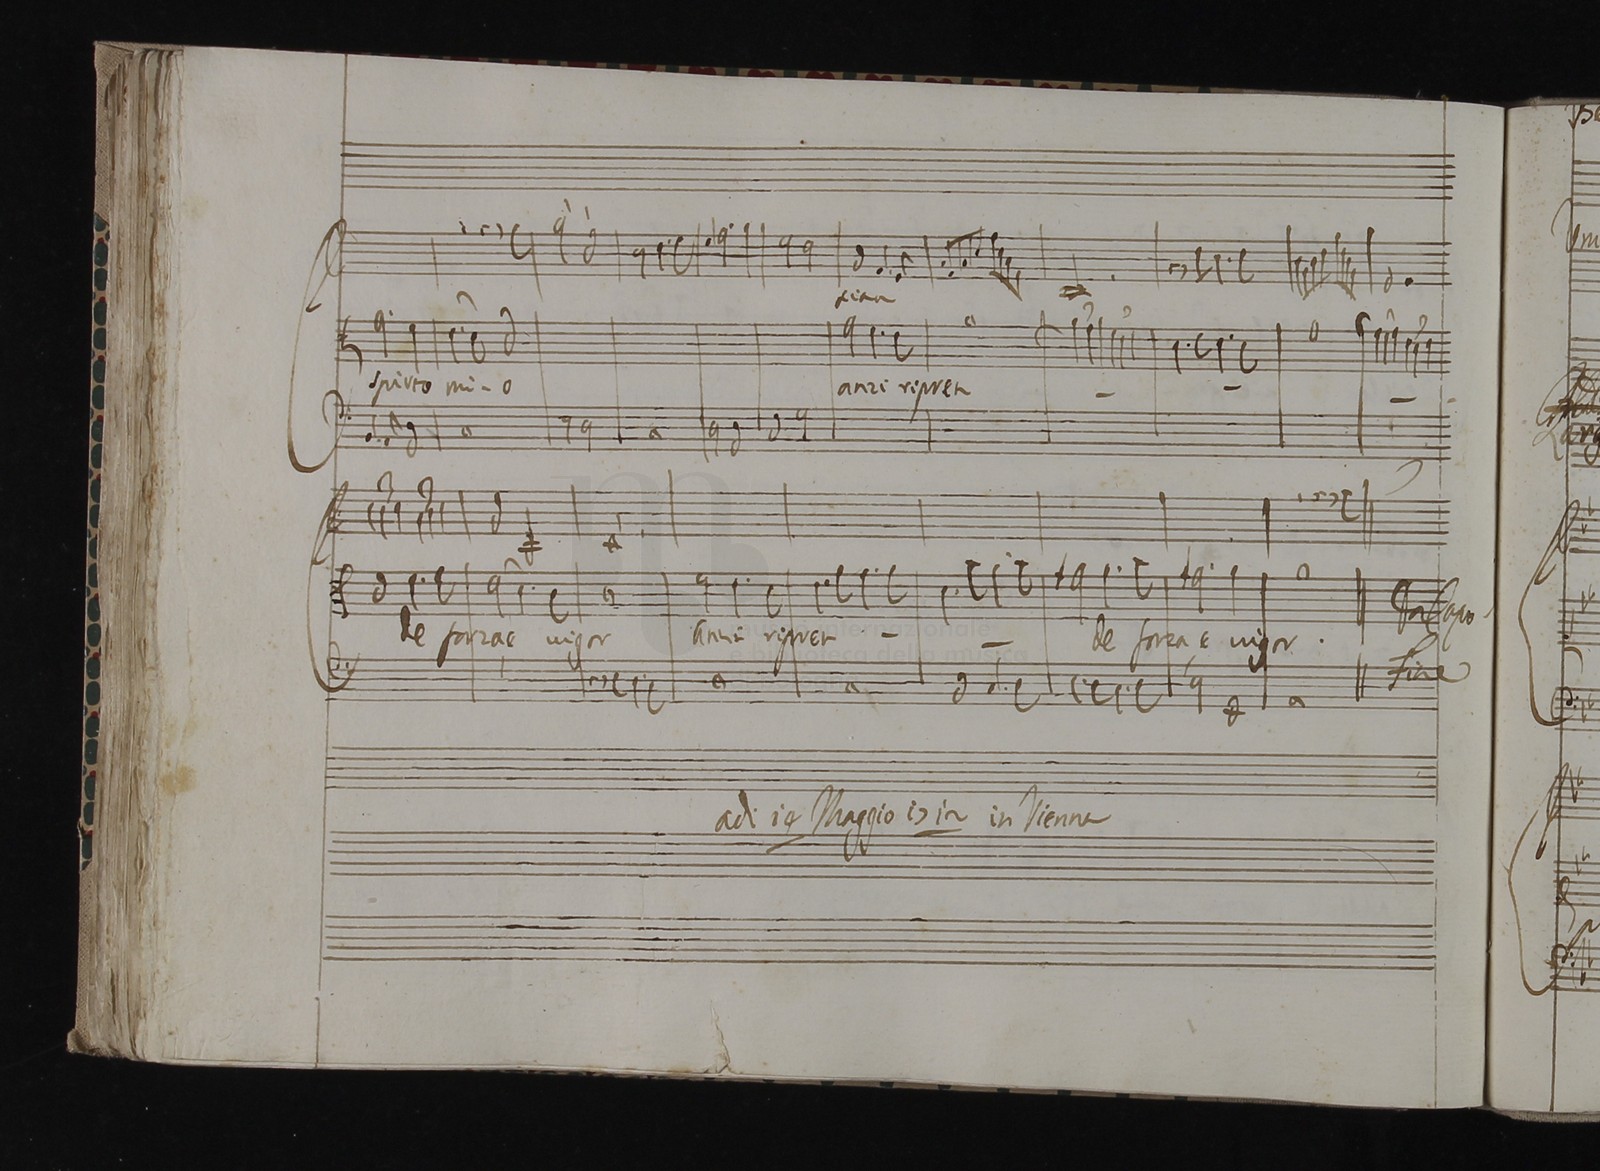 pian
spirto mi - o anzi ripren - - -
De forza e uigor anzi ripren - - De forza e uigor .
Da Capo
Fine
museo internazionale
e biblioteca della musica
adi 14 Maggio in Vienna